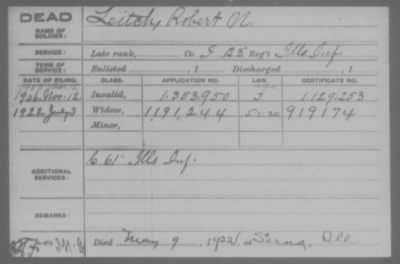 DEAD
NAME OF SOLDIER: Leitch, Robert N.
SERVICE: Late rank, Co. I, 125 Reg't Ills. Inf.
TERM OF SERVICE: Enlisted , 1 Discharged , 1
DATE OF FILING. CLASS. APPLICATION NO. LAW. CERTIFICATE NO.
1906, Nov. 12 Invalid, 1.353.950 1.129.253
1922 July 3 Widow, 1,191,244 919174
Minor,
ADDITIONAL SERVICES: C 61" Ills Inf.
REMARKS:
Died May 9, 1922, at Ill.